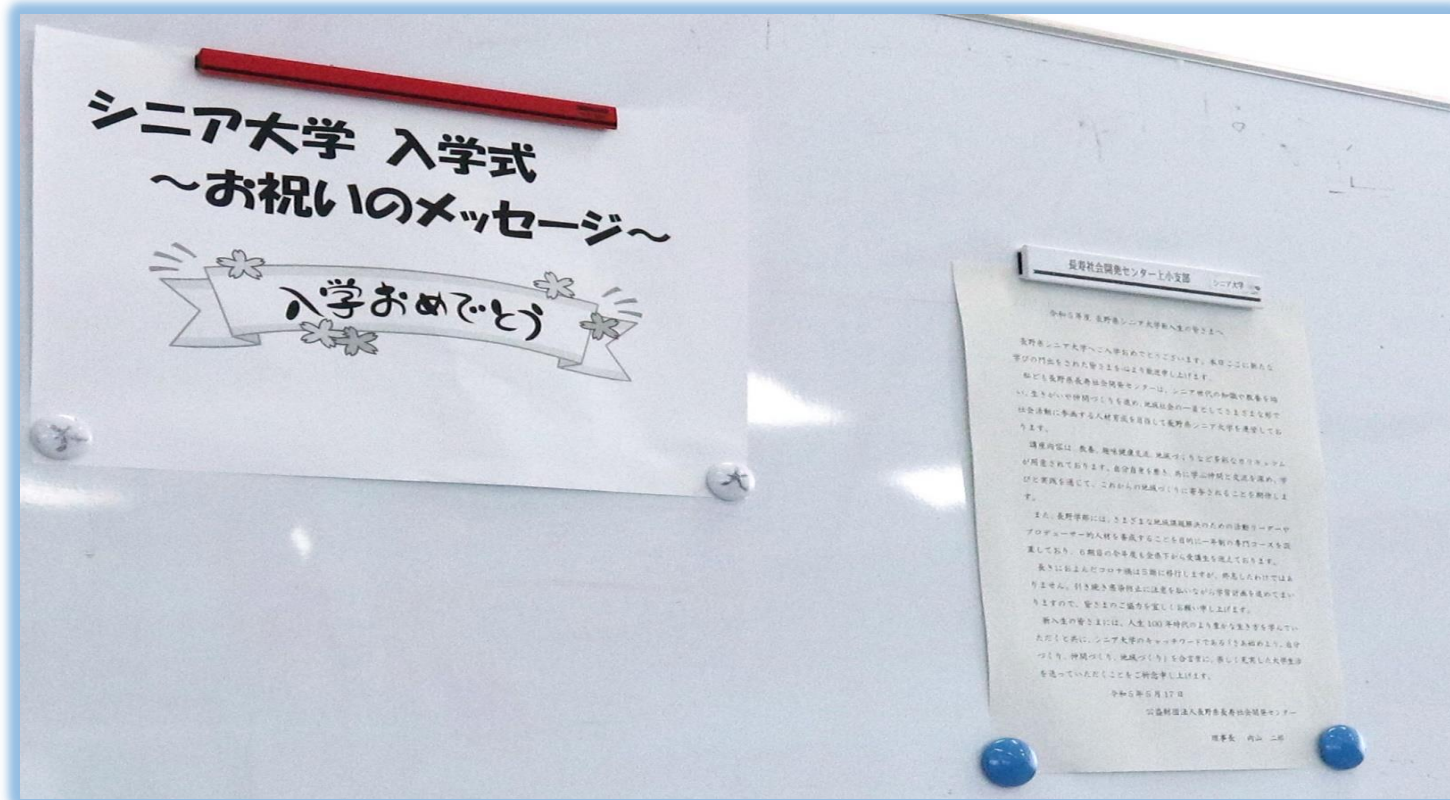 シニア大学 入学式
～お祝いのメッセージ～
入学おめでとう
大
大
長寿社会開発センター上小支部 シニア大学
令和5年度 長野県シニア大学新入生の皆さまへ
長野県シニア大学へご入学おめでとうございます。本日ここに新たな
学びの門出をされた皆さまを心より歓迎申し上げます。
私ども長野県長寿社会開発センターは、シニア世代の知識や教養を培
い、生きがいや仲間づくりを進め、地域社会の一員としてさまざまな形で
社会活動に参画する人材育成を目指して長野県シニア大学を運営してお
ります。
講座内容は、教養、趣味健康交流、地域づくりなど多彩なカリキュラム
が用意されております。自分自身を磨き、共に学ぶ仲間と交流を深め、学
びと実践を通じて、これからの地域づくりに寄与されることを期待しま
す。
また、長野学部には、さまざまな地域課題解決のための活動リーダーや
プロデューサー的人材を養成することを目的に一年制の専門コースを設
置しており、6期目の今年度も全県下から受講生を迎えております。
長きにおよんだコロナ禍は5類に移行しますが、終息したわけではあ
りません。引き続き感染防止に注意を払いながら学習計画を進めてまい
りますので、皆さまのご協力を宜しくお願い申し上げます。
新入生の皆さまには、人生100年時代のより豊かな生き方を学んでい
ただくと共に、シニア大学のキャッチワードである「さあ始めよう、自分
づくり、仲間づくり、地域づくり」を合言葉に、楽しく充実した大学生活
を送っていただくことをご祈念申し上げます。
令和5年5月17日
公益財団法人長野県長寿社会開発センター
理事長 内山 二郎